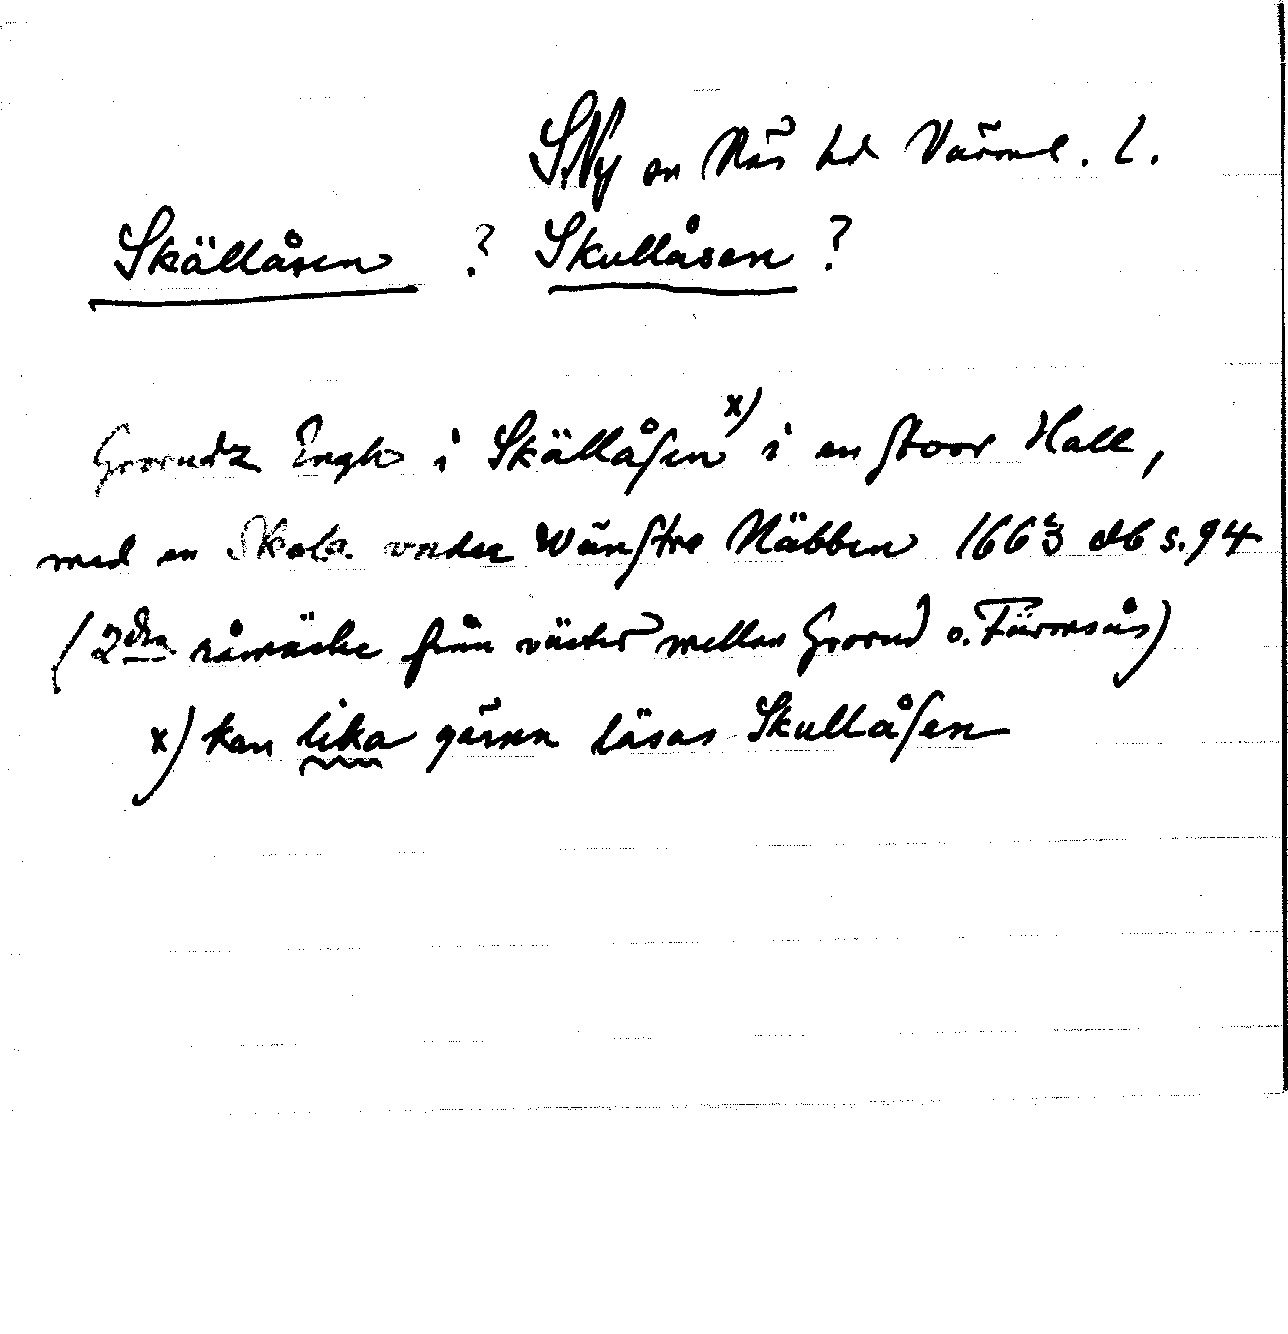 S.Ny sn Näs hd Värml. l.
Skällåsen ? Skullåsen ?
Groendz Engh i Skällåsen x) i en stoor Hall,
med en Skola under Wänstre Näbben 1663 db s. 94
(2dra råmärke från väster mellan Groend o. Furmoås)
x) kan lika gärna läsas Skullåsen